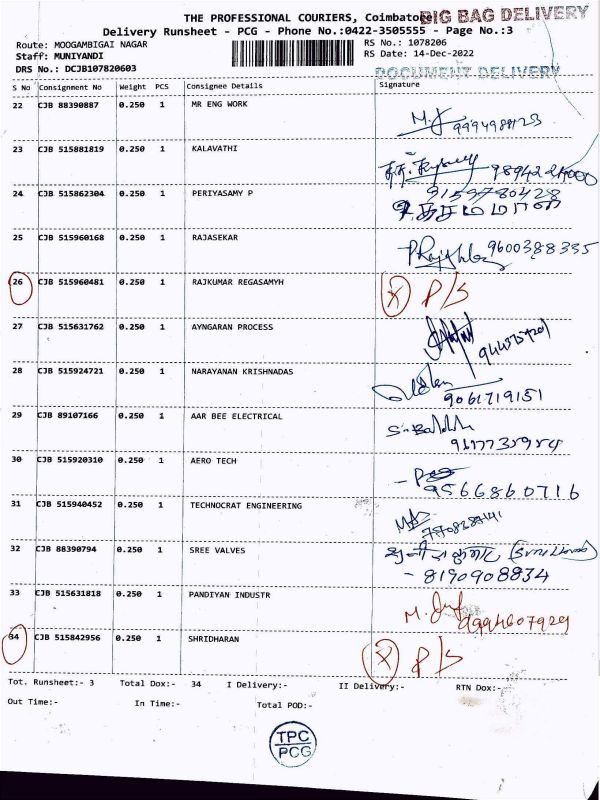 THE PROFESSIONAL COURIERS, Coimbatore
BIG BAG DELIVERY
Delivery Runsheet - PCG - Phone No.:0422-3505555 - Page No.:3
Route: MOOGAMBIGAI NAGAR RS No.: 1078206
Staff: MUNIYANDI RS Date: 14-Dec-2022
DRS No.: DCJB107820603
DOCUMENT DELIVERY
S No Consignment No Weight PCS Consignee Details Signature
22 CJB 88390887 0.250 1 MR ENG WORK
23 CJB 515881819 0.250 1 KALAVATHI
24 CJB 515862304 0.250 1 PERIYASAMY P 9159780428
25 CJB 515960168 0.250 1 RAJASEKAR 9600388335
26 CJB 515960481 0.250 1 RAJKUMAR REGASAMYH X P/S
27 CJB 515631762 0.250 1 AYNGARAN PROCESS
28 CJB 515924721 0.250 1 NARAYANAN KRISHNADAS 9061719151
29 CJB 89107166 0.250 1 AAR BEE ELECTRICAL
30 CJB 515920310 0.250 1 AERO TECH 9566860716
31 CJB 515940452 0.250 1 TECHNOCRAT ENGINEERING
32 CJB 88390794 0.250 1 SREE VALVES
- 8190908834
33 CJB 515631818 0.250 1 PANDIYAN INDUSTR
34 CJB 515842956 0.250 1 SHRIDHARAN X P/S
Tot. Runsheet:- 3 Total Dox:- 34 I Delivery:- II Delivery:- RTN Dox:-
Out Time:- In Time:- Total POD:-
TPC
PCG